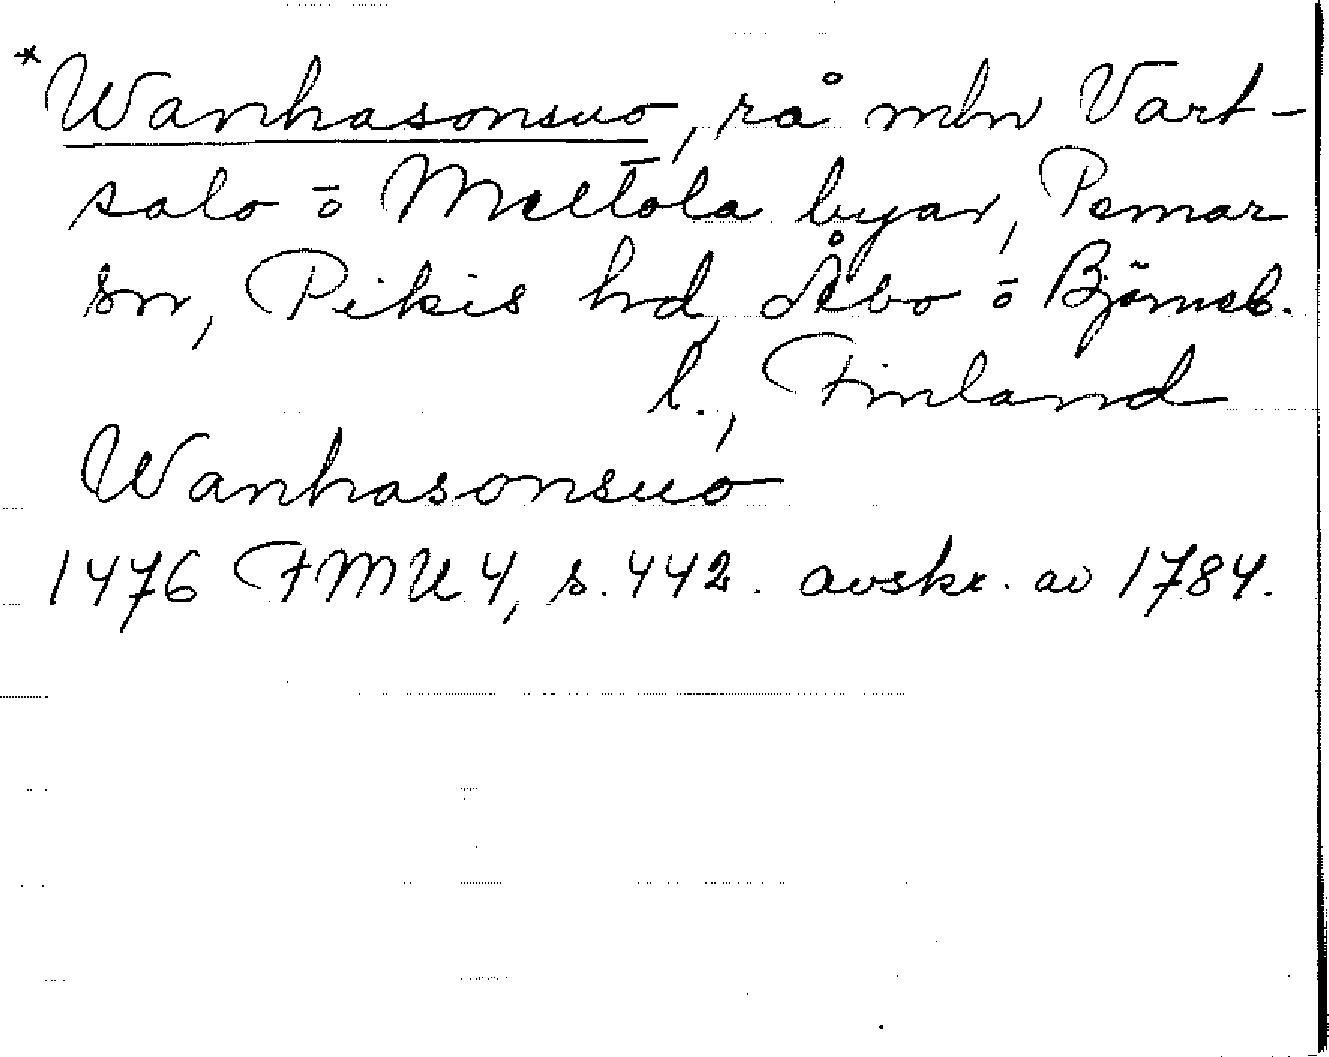 *Wanhasonsuo, rå mln Vart-
salo o Meltola byar, Pemar
sn, Pikis hd, Åbo o Björneb.
l., Finland
Wanhasonsuo
1476 FMU 4, s. 442. avskr. av 1784.